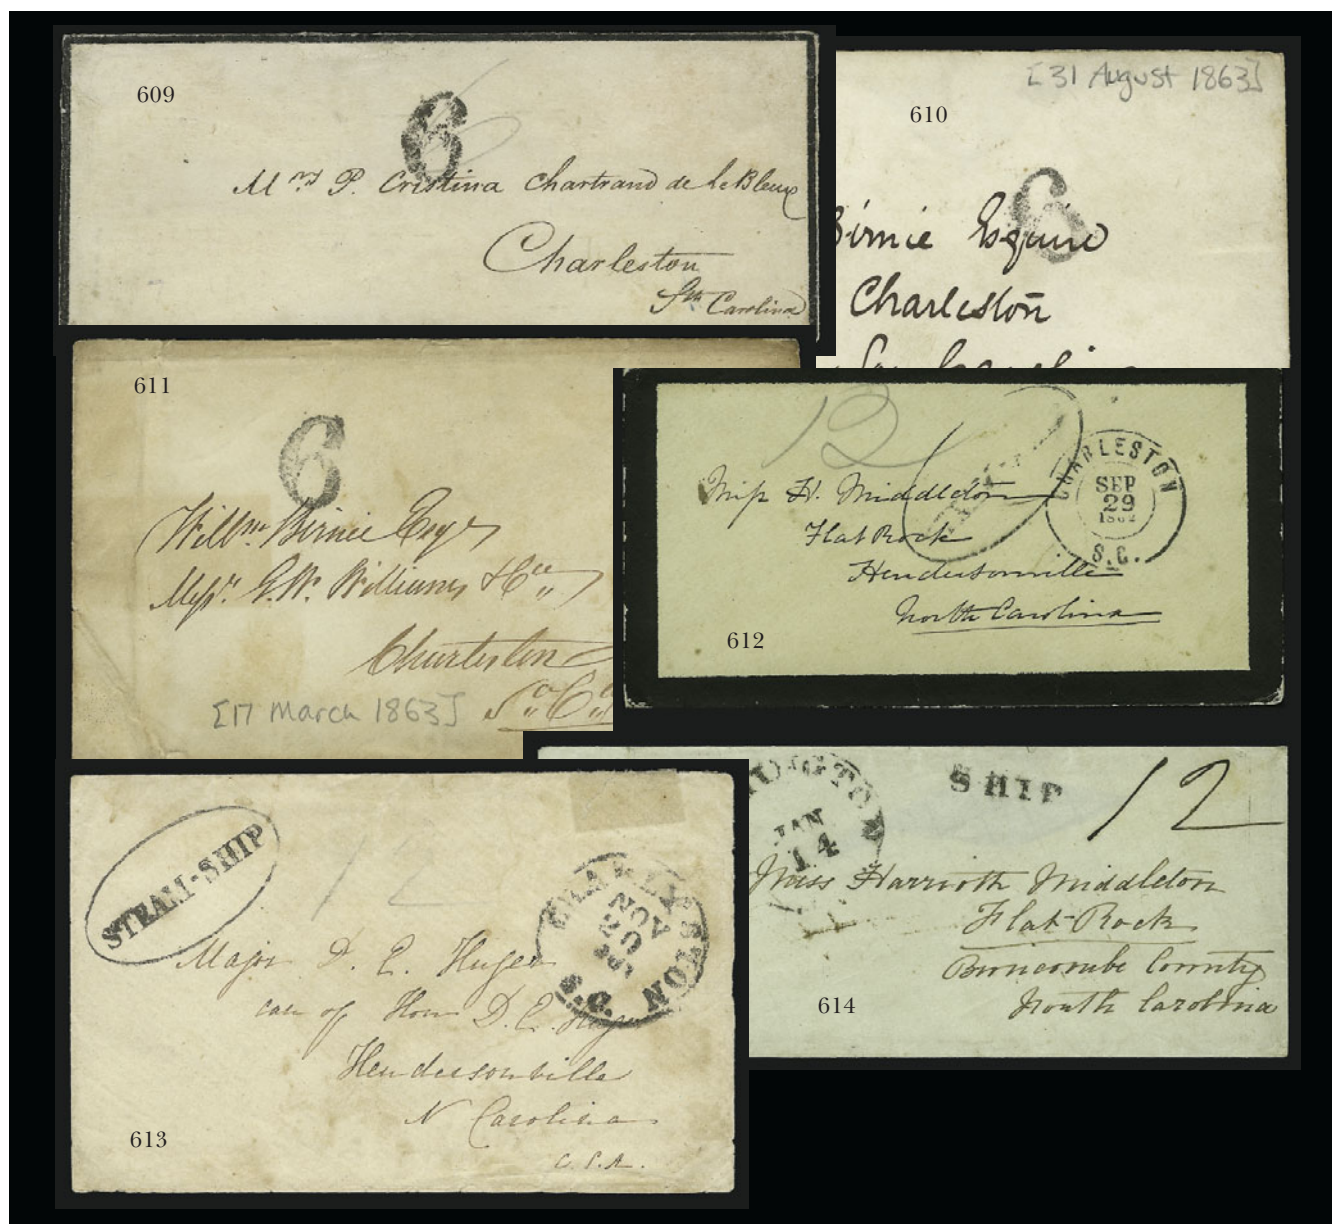 609
6
6
Mrs P. Cristina Chartrand de
Charleston
Sth Carolina
[31 August 1863]
610
6
Birnie Esquire
Charleston
611
6
Willm Birnie Esqr
Messrs. G. W. Williams & Co
Charleston
So Ca
[17 March 1863]
12
CHARLESTON
SEP
29
1862
S.C.
Miss H. Middleton
Flat Rock
Hendersonville
North Carolina
612
STEAM-SHIP
12
CHARLESTON
NOV
20
S.C.
Major D. E. Huger
care of Hon D. E. Huger
Hendersonville
N Carolina
C.S.A.
613
INGTON
JAN
14
SHIP
12
Miss Harriott Middleton
Flat Rock
Buncombe County
North Carolina
614